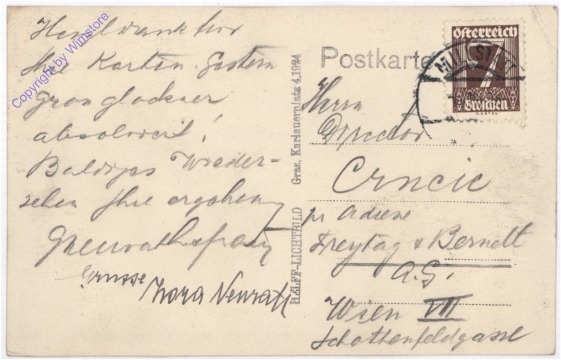 Herzl. Dank für
Ihre Karten. Gestern
Grossglockner
absolviert!
Baldiges Wieder-
sehen Ihr ergebener
Grüsse Nora Neurath
HELFF-LICHTBILD Graz, Karlauerplatz 4. 1924
Postkarte
Österreich
7
Groschen
Herrn
Director
Crncic
pr Adresse
Freytag & Berndt
A.G.
Wien VII
Schottenfeldgasse
Copyright by Wimstore